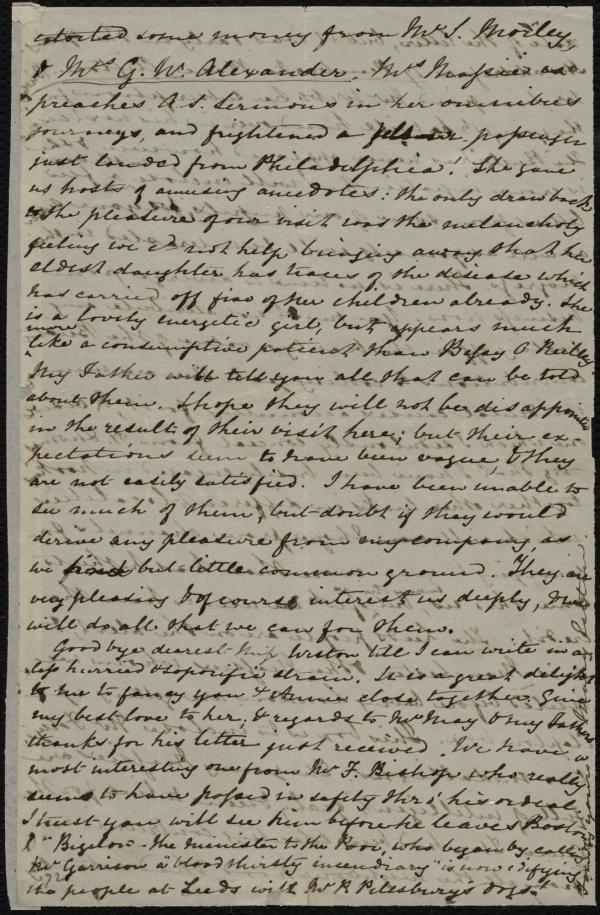 extorted some money from Mr S. Morley
& Mrs G. W. Alexander. Mrs Massie
preaches A. S. Sermons in her omnibus
journeys, and frightened a passenger
just landed from Philadelphia! She gave
us hosts of amusing anecdotes: the only drawback
to the pleasure of our visit was the melancholy
feeling we cd not help bringing away that her
eldest daughter has traces of the disease which
has carried off five of her children already. She
is a lovely energetic girl, but appears much
more
like a consumptive patient than Bessy O'Reilly.
My Father will tell you all that can be told
about them. I hope they will not be disappointed
in the result of their visit here; but their ex-
pectations seem to have been vague, & they
are not easily satisfied. I have been unable to
see much of them, but doubt if they would
derive any pleasure from my company, as
we find but little common ground. They are
very pleasing & of course interest us deeply, & we
will do all that we can for them.
Goodbye dearest Miss Weston till I can write in a
less hurried & soporific strain. It is a great delight
to me to fancy you & Annie close together. Give
my best love to her, & regards to Mr May & my Father's
thanks for his letter just received. We have a
most interesting one from Mr F. Bishop who really
seems to have passed in safety thro' his ordeal.
I trust you will see him before he leaves Boston
Dr Bigelow - the Minister to the Poor, who began by calling
Mr Garrison a "bloodthirsty incendiary" is now edifying
the people at Leeds with Mr P. Pillsbury's dogs!